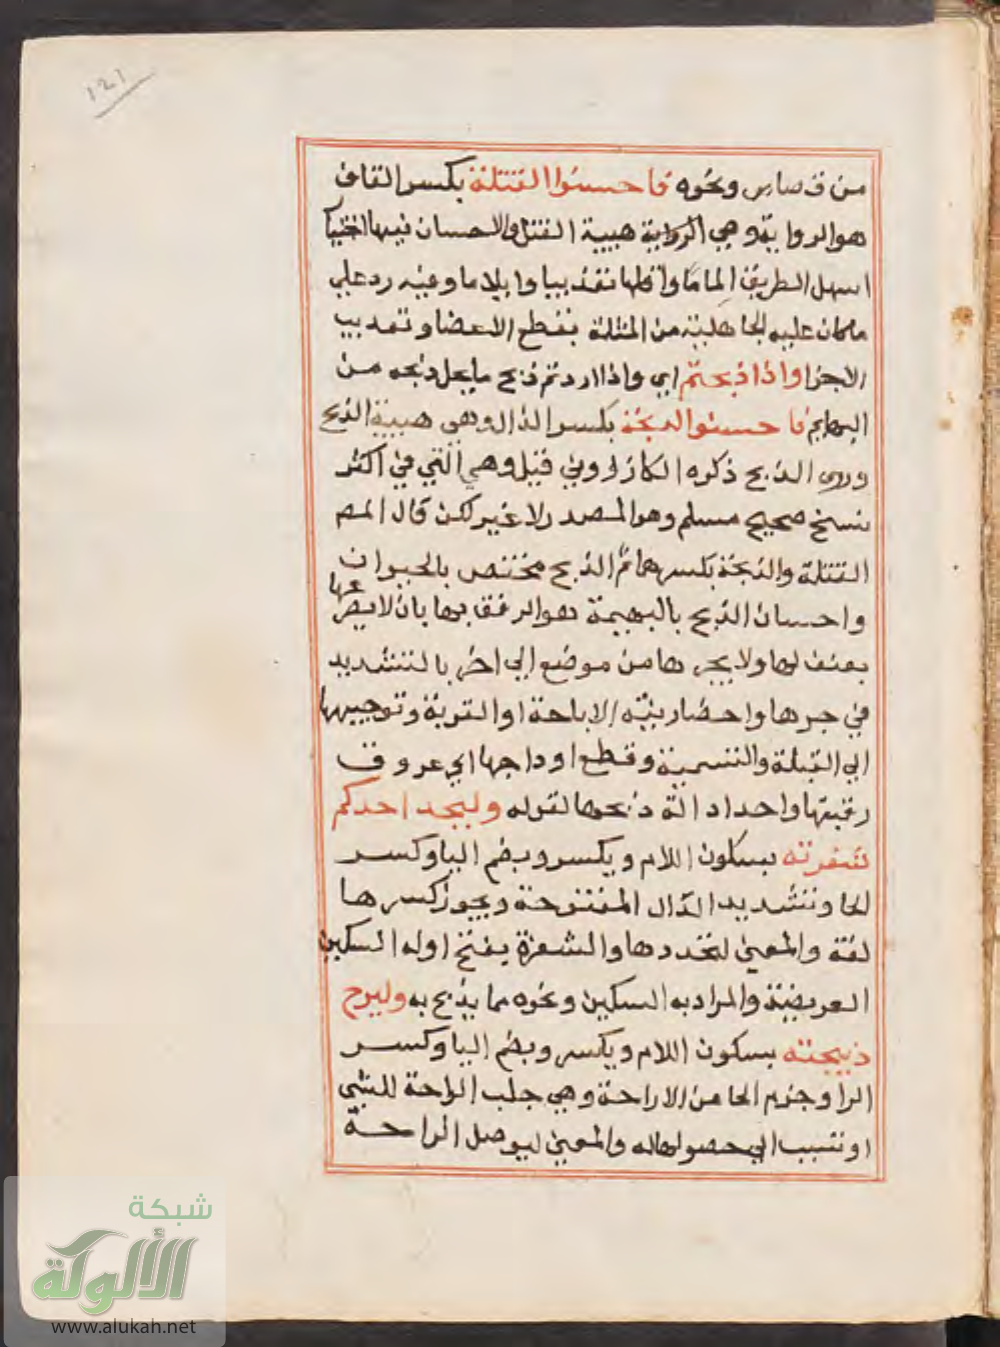 ١٢١
من قصاص ونحوه فاحسنوا القتلة بكسر القاف
هو الرواية وهي الرواية هيية القتل والاحسان فيها اختيا
اسهل الطريق الماما واقلها تعذيبا وايلاما وفيه رد علي
ماكان عليه الجاهلية من المثلة بقطع الاعضا وتعذيب
الاجزا واذا ذبحتم اي واذا اردتم ذبح مايحل ذبحه من
البهايم فاحسنوا الذبحة بكسر الذال وهي هيية الذبح
وروي الذبح ذكره الكازروني قيل وهي التي في اكثر
نسخ صحيح مسلم وهو المصدر لا غير لكن قال المص
القتلة والذبحة بكسرهما ثم الذبح مختص بالحيوان
واحسان الذبح بالبهيمة هو الرفق بها بان لا يصرعها
بعنف لها ولا يجرها من موضع الي اخر بالتشديد
في جرها واحضار نية الاباحة او القربة وتوجيهها
الي القبلة والتسمية وقطع اوداجها اي عروق
رقبتها واحداد الة ذبحها لقوله وليحد احدكم
شفرته بسكون اللام ويكسر وبضم اليا وكسر
الحا وتشديد الدال المفتوحة ويجوز كسرها
لغة والمعني ليحددها والشفرة بفتح اوله السكين
العريضة والمراد به السكين ونحوه مما يذبح به وليرح
ذبيحته بسكون اللام ويكسر وبضم اليا وكسر
الرا وجزم الحا من الاراحة وهي جلب الراحة للشي
او نسبب الي حصولها له والمعني ليوصل الراحة
شبكة
الألوكة
www.alukah.net